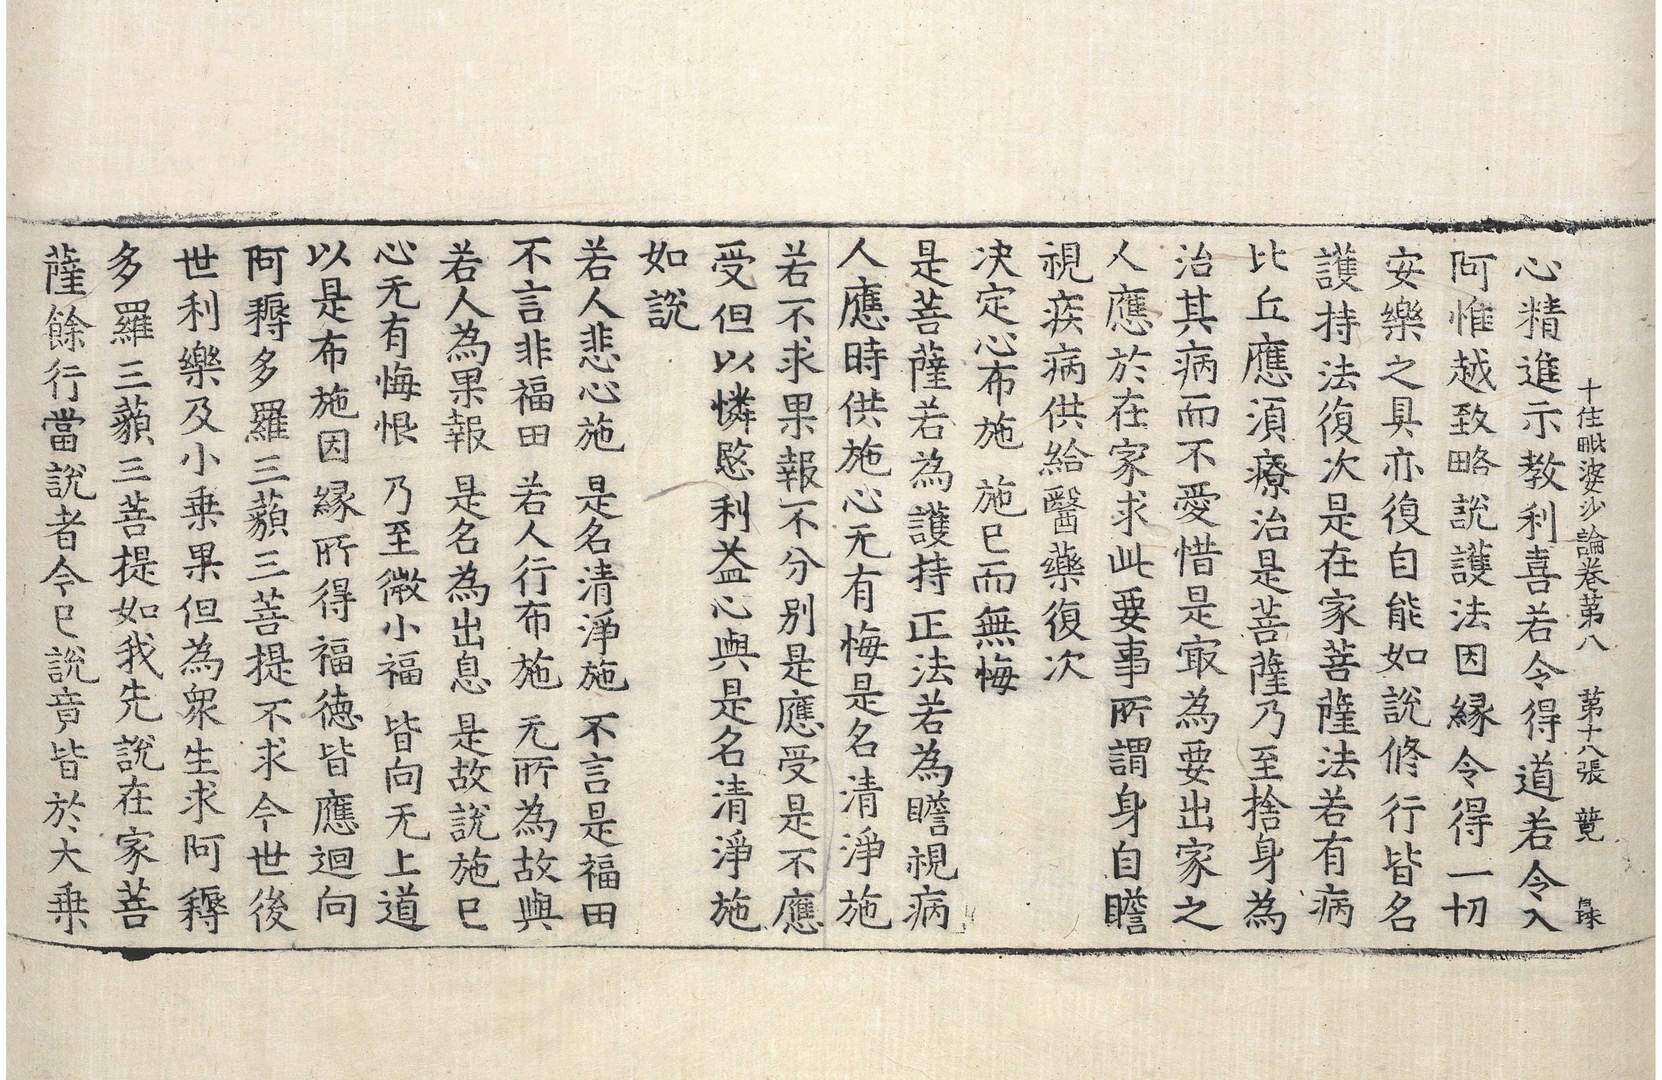 十住毗婆沙論卷第八 第十八張 競
心精進示教利喜若令得道若令入
阿惟越致略說護法因緣令得一切
安樂之具亦復自能如說修行皆名
護持法復次是在家菩薩法若有病
比丘應須療治是菩薩乃至捨身為
治其病而不愛惜是㝡為要出家之
人應於在家求此要事所謂身自瞻
視疾病供給醫藥復次
決定心布施 施已而無悔
是菩薩若為護持正法若為瞻視病
人應時供施心无有悔是名清淨施
若不求果報不分别是應受是不應
受但以憐愍利益心與是名清淨施
如說
若人悲心施 是名清淨施 不言是福田
不言非福田 若人行布施 无所為故與
若人為果報 是名為出息 是故說施已
心无有悔恨 乃至微小福 皆向无上道
以是布施因緣所得福德皆應迴向
阿耨多羅三藐三菩提不求今世後
世利樂及小乘果但為眾生求阿耨
多羅三藐三菩提如我先說在家菩
薩餘行當說者今已說竟皆於大乘